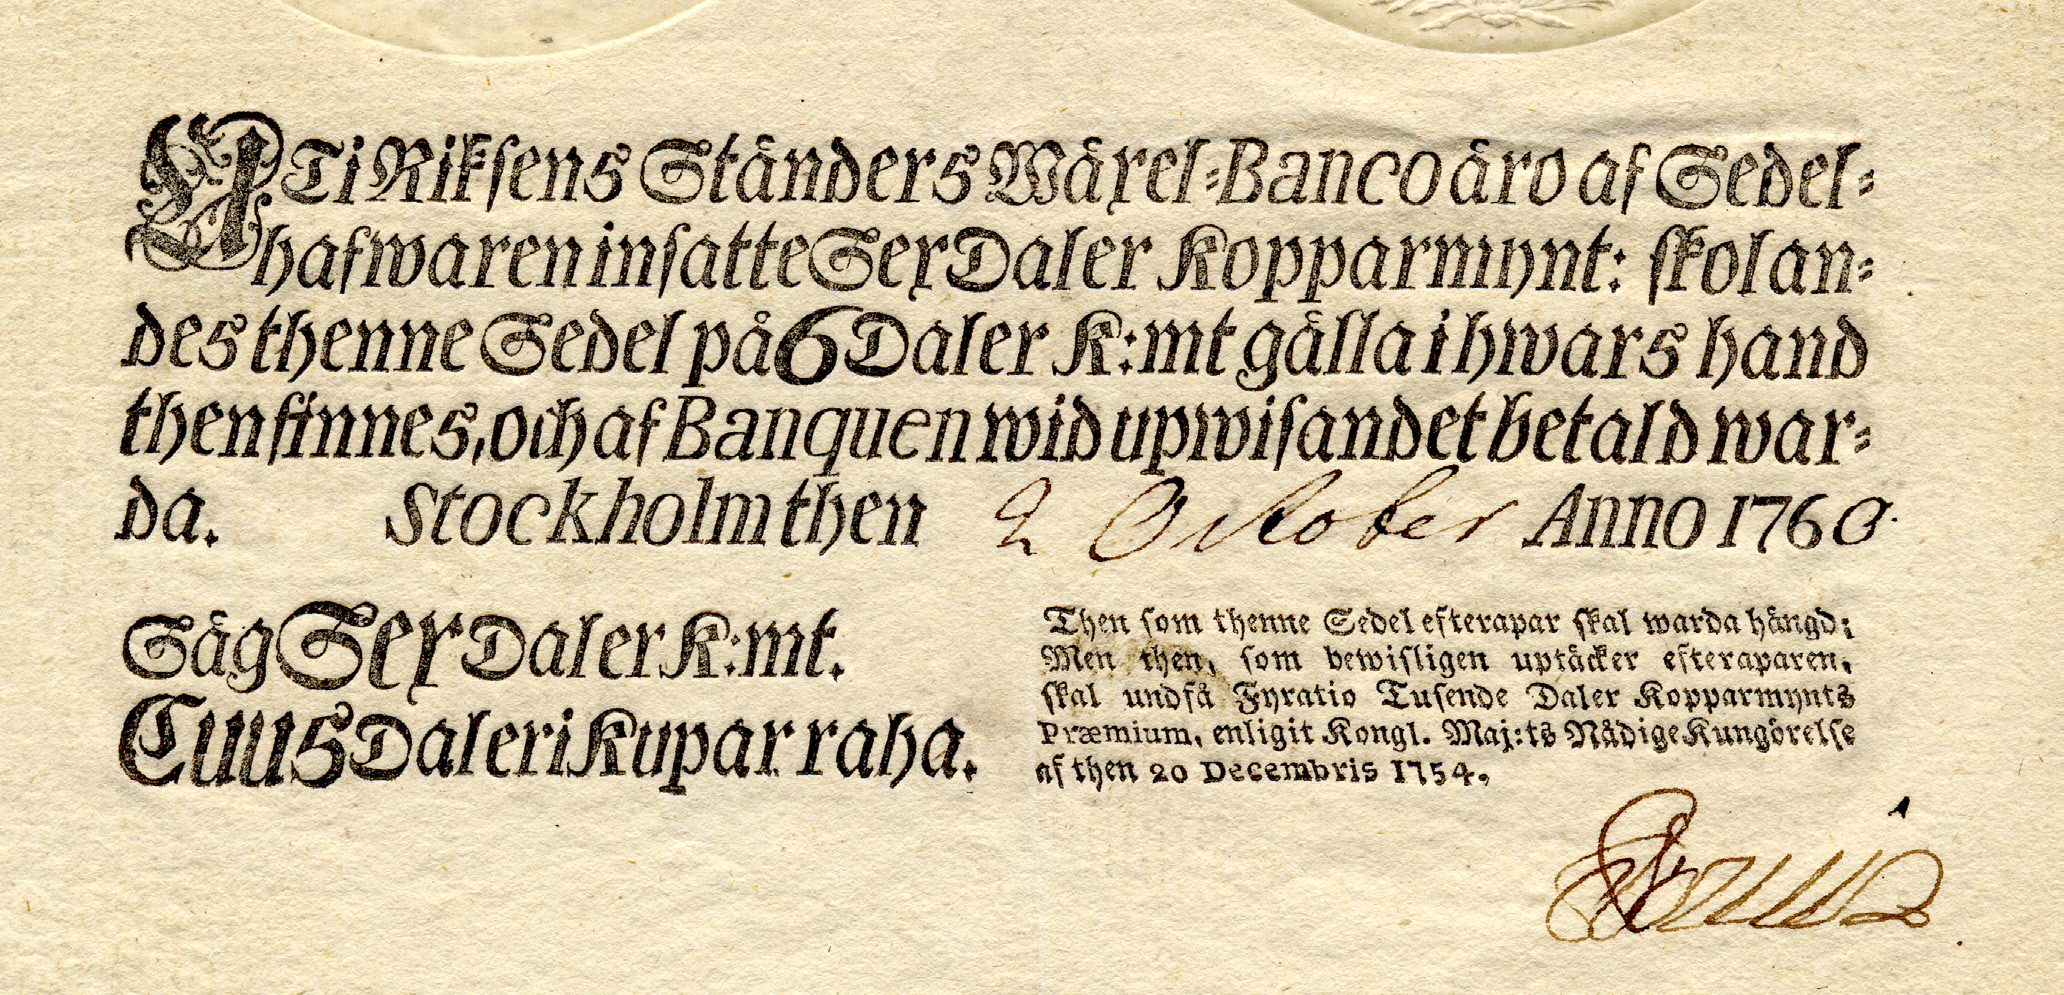 UTi Riksens Ständers Wäxel-Banco äro af Sedel-
hafwaren insatte Sex Daler Kopparmynt: skolan-
des thenne Sedel på 6 Daler K:mt gälla i hwars hand
then finnes, och af Banquen wid upwisandet betald war-
da. Stockholm then 2 October Anno 1760.
Säg Sex Daler K:mt.
Cuusi Daleri Kupar raha.
Then som thenne Sedel efterapar skal warda hängd;
Men then, som bewisligen uptäcker efteraparen,
skal undfå Fyratio Tusende Daler Kopparmynts
Præmium, enligit Kongl. Maj:ts Nådige Kungörelse
af then 20 Decembris 1754.